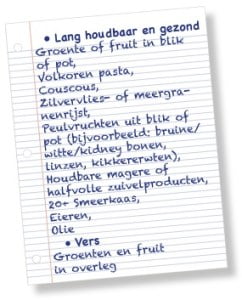 • Lang houdbaar en gezond
Groente of fruit in blik
of pot,
Volkoren pasta,
Couscous,
Zilvervlies- of meergra-
nenrijst,
Peulvruchten uit blik of
pot (bijvoorbeeld: bruine/
witte/kidney bonen,
linzen, kikkererwten),
Houdbare magere of
halfvolle zuivelproducten,
20+ Smeerkaas,
Eieren,
Olie
• Vers
Groenten en fruit
in overleg